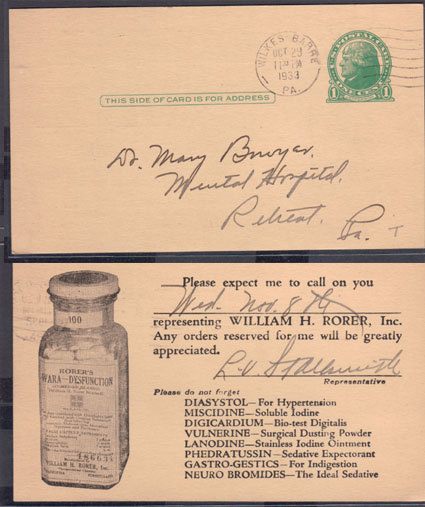 WILKES BARRE
OCT 29
11 PM
1933
PA.
U.S. POSTAL CARD
1
THIS SIDE OF CARD IS FOR ADDRESS
Dr. Mary Bowyer,
Mental Hospital,
Retreat,
Pa.
Please expect me to call on you
Wed. Nov. 8th
representing WILLIAM H. RORER, Inc.
Any orders reserved for me will be greatly
appreciated.
Representative
Please do not forget
DIASYSTOL—For Hypertension
MISCIDINE—Soluble Iodine
DIGICARDIUM—Bio-test Digitalis
VULNERINE—Surgical Dusting Powder
LANODINE—Stainless Iodine Ointment
PHEDRATUSSIN—Sedative Expectorant
GASTRO-GESTICS—For Indigestion
NEURO BROMIDES—The Ideal Sedative
100
RORER'S
WARA—DYSFUNCTION
WILLIAM H. RORER, Inc.